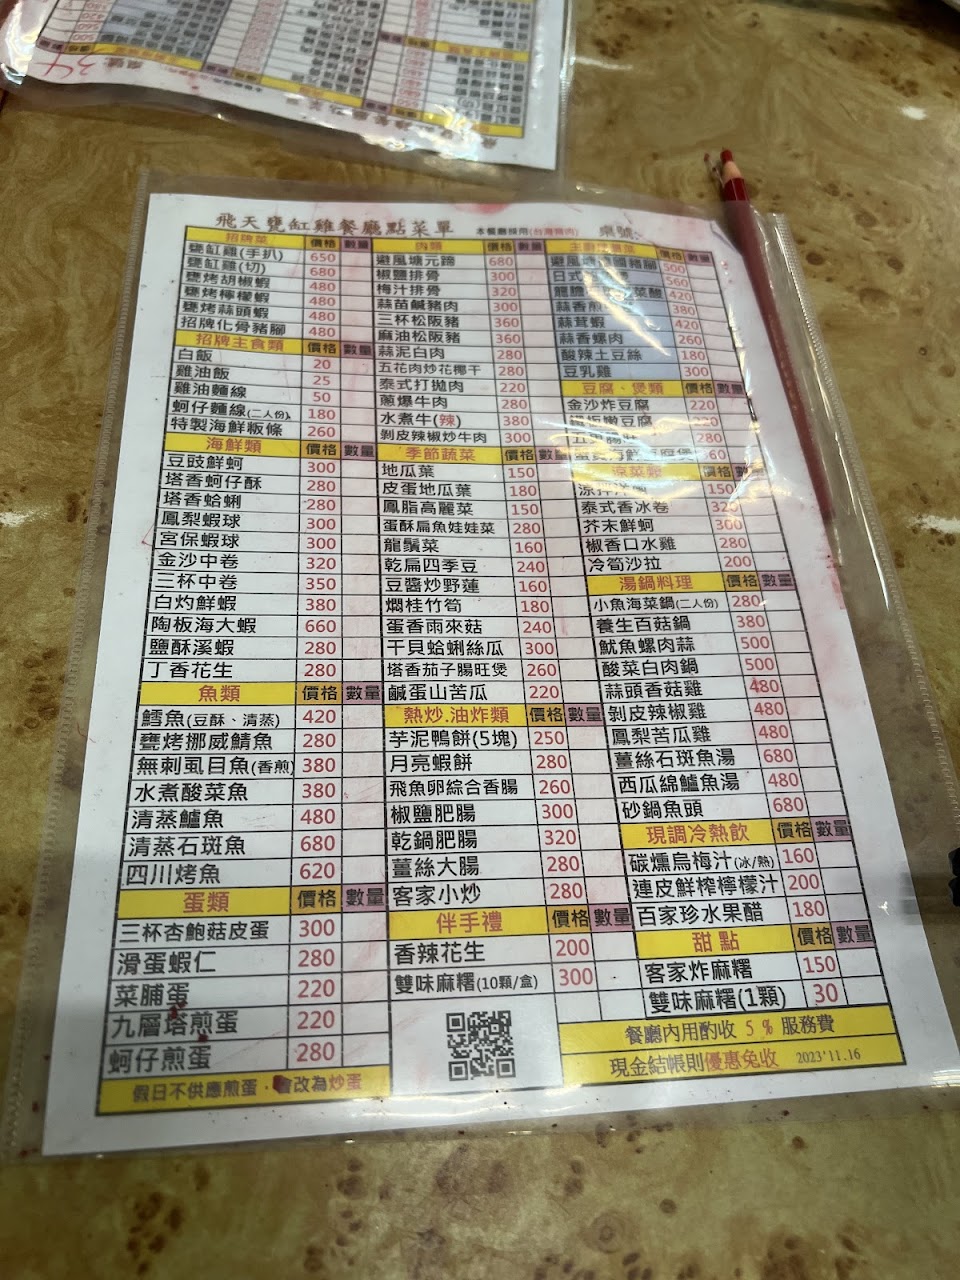 飛天甕缸雞餐廳點菜單 本餐廳採用(台灣豬肉) 桌號:
招牌菜 價格 數量
甕缸雞(手扒) 650
甕缸雞(切) 680
甕烤胡椒蝦 480
甕烤檸檬蝦 480
甕烤蒜頭蝦 480
招牌化骨豬腳 480
招牌主食類 價格 數量
白飯 20
雞油飯 25
雞油麵線 50
蚵仔麵線(二人份) 180
特製海鮮粄條 260
海鮮類 價格 數量
豆豉鮮蚵 300
塔香蚵仔酥 280
塔香蛤蜊 280
鳳梨蝦球 300
宮保蝦球 300
金沙中卷 320
三杯中卷 350
白灼鮮蝦 380
陶板海大蝦 660
鹽酥溪蝦 280
丁香花生 280
魚類 價格 數量
鱈魚(豆酥、清蒸) 420
甕烤挪威鯖魚 280
無刺虱目魚(香煎) 380
水煮酸菜魚 380
清蒸鱸魚 480
清蒸石斑魚 680
四川烤魚 620
蛋類 價格 數量
三杯杏鮑菇皮蛋 300
滑蛋蝦仁 280
菜脯蛋 220
九層塔煎蛋 220
蚵仔煎蛋 280
假日不供應煎蛋,會改為炒蛋
肉類 價格 數量
避風塘元蹄 680
椒鹽排骨 300
梅汁排骨 320
蒜苗鹹豬肉 300
三杯松阪豬 360
麻油松阪豬 360
蒜泥白肉 280
五花肉炒花椰干 280
泰式打拋肉 220
蔥爆牛肉 280
水煮牛(辣) 380
剝皮辣椒炒牛肉 300
季節蔬菜 價格 數量
地瓜葉 150
皮蛋地瓜葉 180
鳳脂高麗菜 150
蛋酥扁魚娃娃菜 280
龍鬚菜 160
乾扁四季豆 240
豆醬炒野蓮 160
燜桂竹筍 180
蛋香雨來菇 240
干貝蛤蜊絲瓜 300
塔香茄子腸旺煲 260
鹹蛋山苦瓜 220
熱炒.油炸類 價格 數量
芋泥鴨餅(5塊) 250
月亮蝦餅 280
飛魚卵綜合香腸 260
椒鹽肥腸 300
乾鍋肥腸 320
薑絲大腸 280
客家小炒 280
伴手禮 價格 數量
香辣花生 200
雙味麻糬(10顆/盒) 300
價格 數量
避風塘德國豬腳 500
日式 560
420
蒜香 380
蒜茸蝦 420
蒜香螺肉 260
酸辣土豆絲 180
豆乳雞 300
豆腐、煲類 價格 數量
金沙炸豆腐 220
鐵板嫩豆腐 220
280
涼菜類
150
泰式香冰卷 320
芥末鮮蚵 300
椒香口水雞 280
冷筍沙拉 200
湯鍋料理 價格 數量
小魚海菜鍋(二人份) 280
養生百菇鍋 380
魷魚螺肉蒜 500
酸菜白肉鍋 500
蒜頭香菇雞 480
剝皮辣椒雞 480
鳳梨苦瓜雞 480
薑絲石斑魚湯 680
西瓜綿鱸魚湯 480
砂鍋魚頭 680
現調冷熱飲 價格 數量
碳燻烏梅汁(冰/熱) 160
連皮鮮榨檸檬汁 200
百家珍水果醋 180
甜點 價格 數量
客家炸麻糬 150
雙味麻糬(1顆) 30
餐廳內用酌收 5 % 服務費
現金結帳則優惠免收 2023'11.16